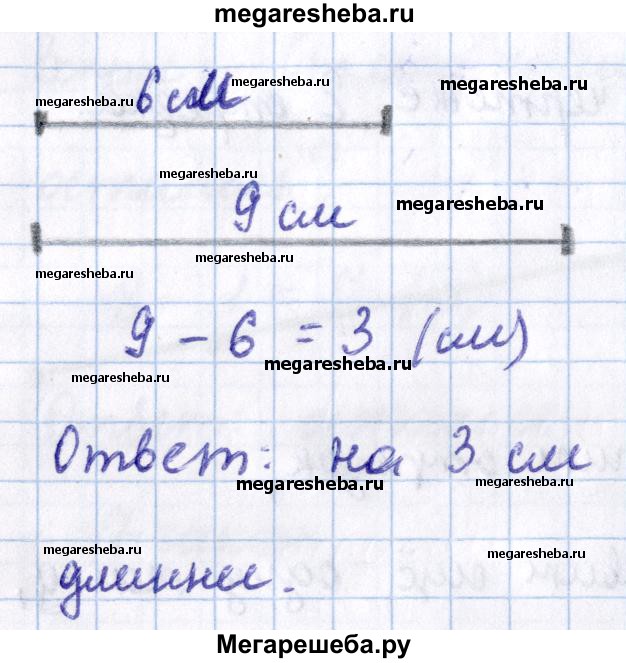 megaresheba.ru
6 см
megaresheba.ru
megaresheba.ru
megaresheba.ru
megaresheba.ru
9 см
megaresheba.ru
megaresheba.ru
megaresheba.ru
9 - 6 = 3 (см)
megaresheba.ru
megaresheba.ru
Ответ: на 3 см
megaresheba.ru
megaresheba.ru
megaresheba.ru
megaresheba.ru
длиннее.
Мегарешеба.ру